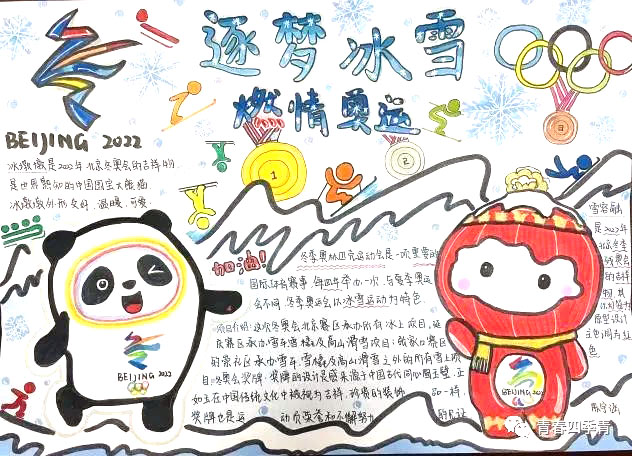 逐梦冰雪
燃情奥运
BEIJING 2022
冰墩墩是2022年北京冬奥会的吉祥物,
是世界熟知的中国国宝大熊猫
冰墩墩外形友好,温暖,可爱
1
2
3
加油!
冬季奥林匹克运动会是一项重要的
国际体育赛事,每四年举办一次,与夏季奥运
会不同,冬季奥运会以冰雪运动为特色.
项目介绍:这次冬奥会北京赛区承办所有冰上项目,延
庆赛区承办雪车雪橇及高山滑雪项目:张家口赛区
的崇礼区承办雪车,雪橇及高山滑雪之外的所有雪上项
目冬奥会奖牌:奖牌的设计灵感来源于中国古代同心圆玉璧,正
如玉在中国传统文化中被视为吉祥,珍贵的装饰 品一样,
奖牌也是运 动员荣誉和不懈努力 的见证
雪容融
是2022年
BEIJING 2022
BEIJING 2022
青春四季青